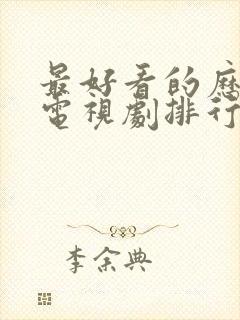 最好看的歷
電視劇排行
李余典